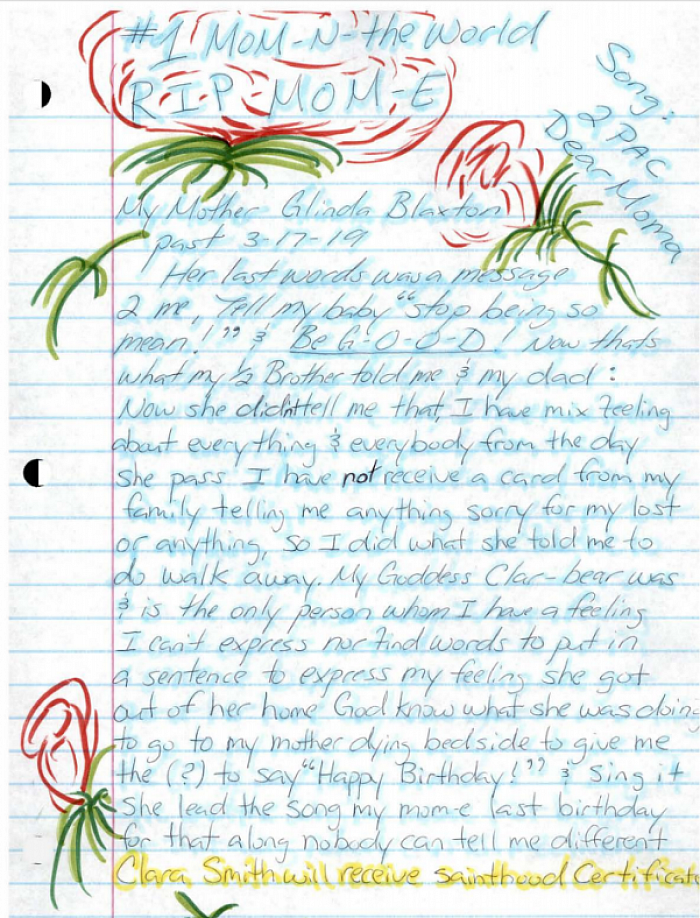 #1 MOM-N-the World
R-I-P-MOM-E
Song:
2 PAC
Dear Moma
My Mother Glinda Blaxton
past 3-17-19
Her last words was a message
2 me, Tell my baby “stop being so
mean!” & Be G-O-O-D! Now thats
what my 1/2 Brother told me & my dad:
Now she didn't tell me that, I have mix feeling
about everything & everybody from the day
she pass. I have not receive a card from my
family telling me anything sorry for my lost
or anything, so I did what she told me to
do walk away. My Goddess Clar-bear was
& is the only person whom I have a feeling
I can't express nor find words to put in
a sentence to express my feeling she got
out of her home God know what she was doing
to go to my mother dying bedside to give me
the (?) to say “Happy Birthday!” & Sing it
She lead the song my mom-e last birthday
for that along nobody can tell me different
Clara Smith will receive sainthood Certificate